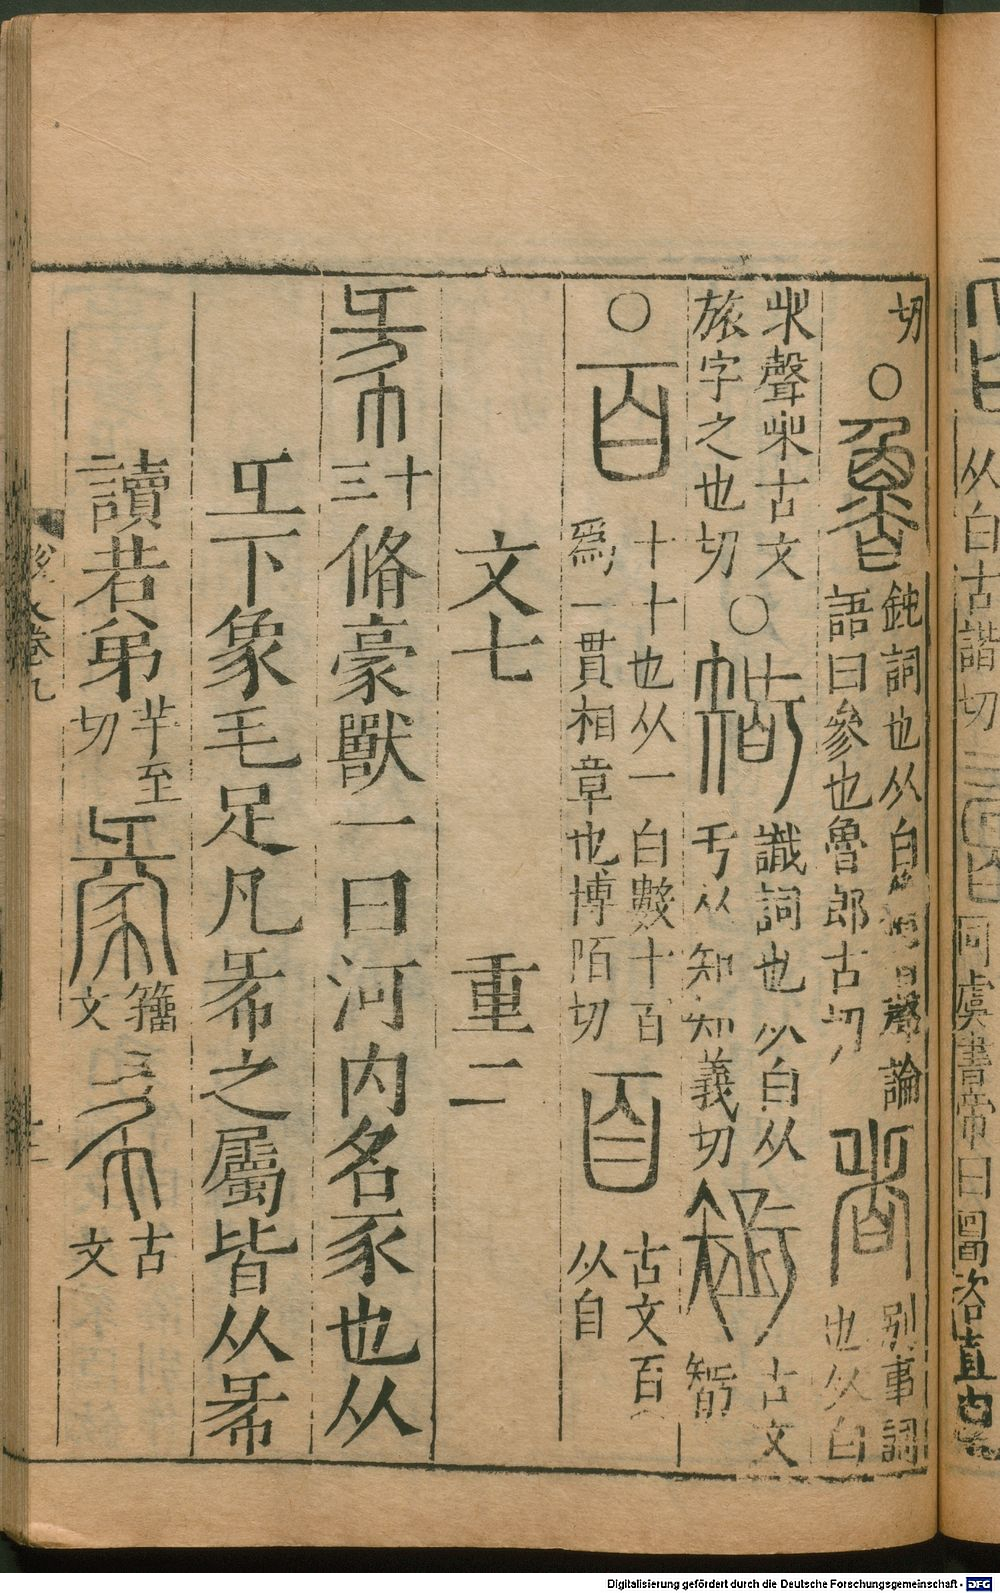 从白古諧切
同虞書帝曰
切○魯鈍詞也从白
聲論
語曰參也魯郎古切
者别事詞
也从白
𣥐聲𣥐古文
旅字之也切
○𥏼識詞也从白从
亏从知知義切
古文
𥏼
○百十十也从一白數十百
爲一貫相章也博陌切
古文百
从自
文七　重二
㣇十三脩豪獸一曰河内名豕也从
彑下象毛足凡㣇之屬皆从㣇
讀若弟羊至切
籒文
古文
文卷九